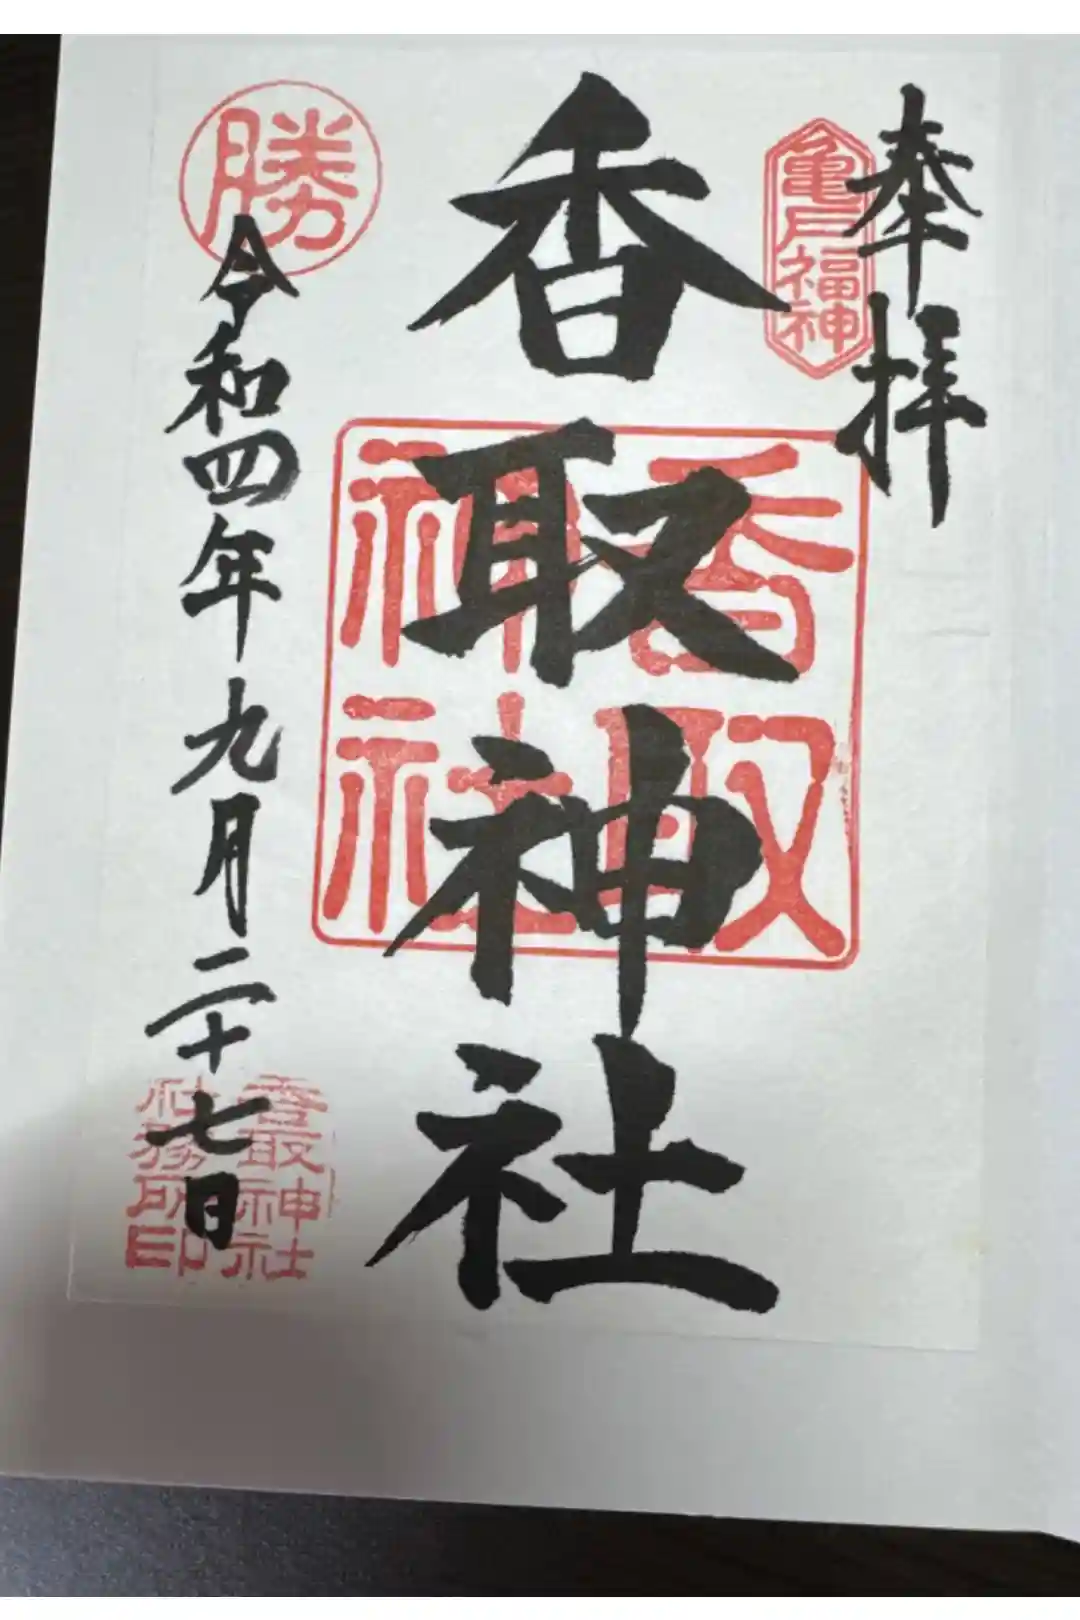 奉拝
亀戸福神
香取神社
香取
神社
勝
令和四年九月二十七日
香取神社
社務所印